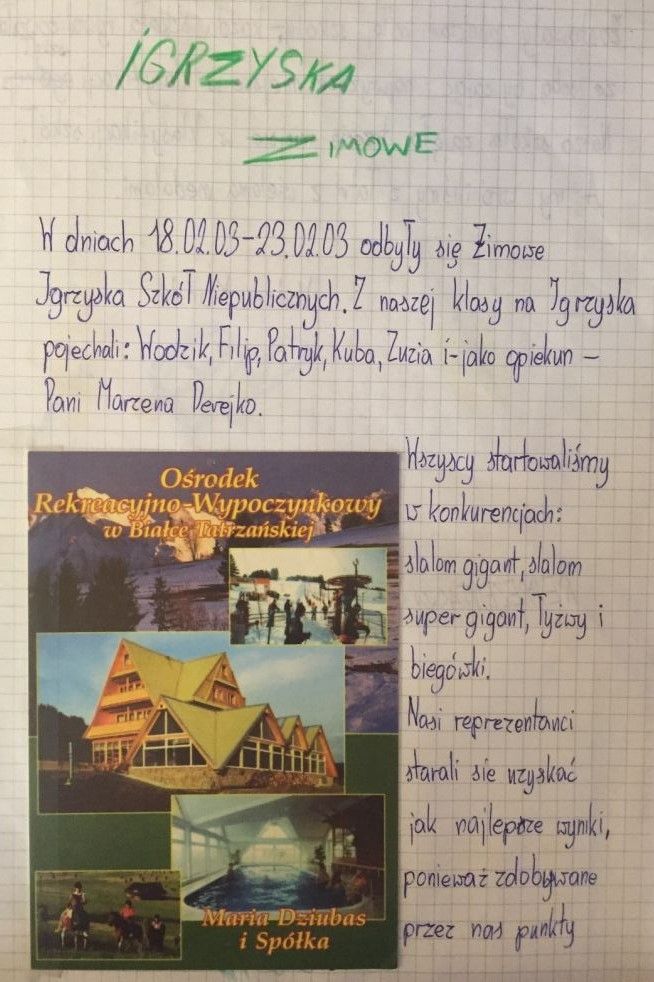 IGRZYSKA
ZIMOWE
W dniach 18.02.03-23.02.03 odbyły się Zimowe
Igrzyska Szkół Niepublicznych. Z naszej klasy na Igrzyska
pojechali: Wodzik, Filip, Patryk, Kuba, Zuzia i-jako opiekun -
Pani Marzena Derejko.
Ośrodek
Rekreacyjno-Wypoczynkowy
w Białce Tatrzańskiej
Maria Dziubas
i Spółka
Wszyscy startowaliśmy
w konkurencjach:
slalom gigant, slalom
super gigant, łyżwy i
biegówki.
Nasi reprezentanci
starali sie uzyskać
jak najlepsze wyniki,
ponieważ zdobywane
przez nas punkty